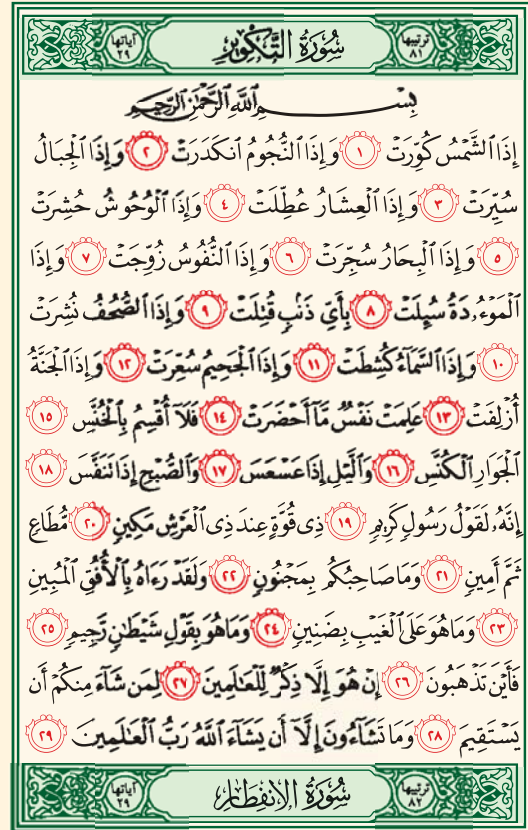 ترتيبها ٨١ سُورَةُ التَّكْوِيرِ آياتها ٢٩
بِسْمِ اللَّهِ الرَّحْمَٰنِ الرَّحِيمِ
إِذَا الشَّمْسُ كُوِّرَتْ ١ وَإِذَا النُّجُومُ انكَدَرَتْ ٢ وَإِذَا الْجِبَالُ
سُيِّرَتْ ٣ وَإِذَا الْعِشَارُ عُطِّلَتْ ٤ وَإِذَا الْوُحُوشُ حُشِرَتْ
٥ وَإِذَا الْبِحَارُ سُجِّرَتْ ٦ وَإِذَا النُّفُوسُ زُوِّجَتْ ٧ وَإِذَا
الْمَوْءُۥدَةُ سُئِلَتْ ٨ بِأَيِّ ذَنۢبٍ قُتِلَتْ ٩ وَإِذَا الصُّحُفُ نُشِرَتْ
١٠ وَإِذَا السَّمَآءُ كُشِطَتْ ١١ وَإِذَا الْجَحِيمُ سُعِّرَتْ ١٢ وَإِذَا الْجَنَّةُ
أُزْلِفَتْ ١٣ عَلِمَتْ نَفْسٌ مَّآ أَحْضَرَتْ ١٤ فَلَآ أُقْسِمُ بِالْخُنَّسِ ١٥
الْجَوَارِ الْكُنَّسِ ١٦ وَالَّيْلِ إِذَا عَسْعَسَ ١٧ وَالصُّبْحِ إِذَا تَنَفَّسَ ١٨
إِنَّهُۥ لَقَوْلُ رَسُولٍ كَرِيمٍ ١٩ ذِى قُوَّةٍ عِندَ ذِى الْعَرْشِ مَكِينٍ ٢٠ مُّطَاعٍ
ثَمَّ أَمِينٍ ٢١ وَمَا صَاحِبُكُم بِمَجْنُونٍ ٢٢ وَلَقَدْ رَءَاهُ بِالْأُفُقِ الْمُبِينِ
٢٣ وَمَا هُوَ عَلَى الْغَيْبِ بِضَنِينٍ ٢٤ وَمَا هُوَ بِقَوْلِ شَيْطَٰنٍ رَّجِيمٍ ٢٥
فَأَيْنَ تَذْهَبُونَ ٢٦ إِنْ هُوَ إِلَّا ذِكْرٌ لِّلْعَٰلَمِينَ ٢٧ لِمَن شَآءَ مِنكُمْ أَن
يَسْتَقِيمَ ٢٨ وَمَا تَشَآءُونَ إِلَّآ أَن يَشَآءَ اللَّهُ رَبُّ الْعَٰلَمِينَ ٢٩
ترتيبها ٨٢ سُورَةُ الانفِطَارِ آياتها ٢٩